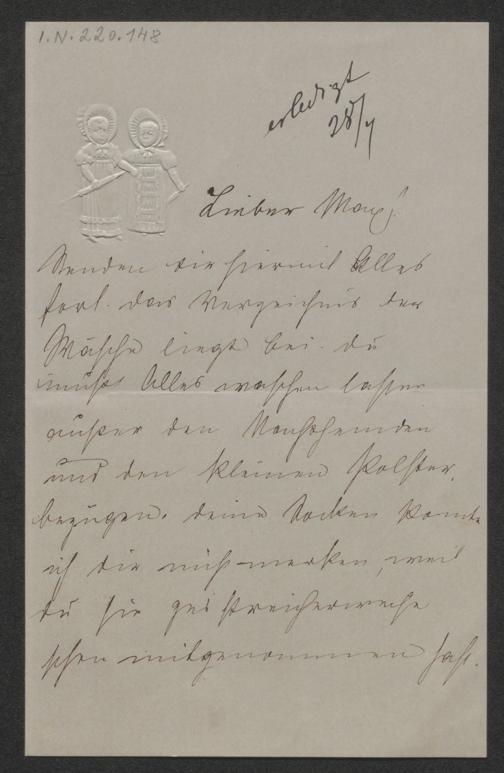 I.N. 220.148
erledigt
28/7
Lieber Max!
Senden dir hiermit Alles
fort. das Verzeichnis der
Wäsche liegt bei. du
mußt Alles waschen lassen
außer den Nachthemden
und den kleinen Polster,
bezügen. deine Socken konnte
ich dir nicht merken, weil
du sie geistreicherweise
schon mitgenommen hast.